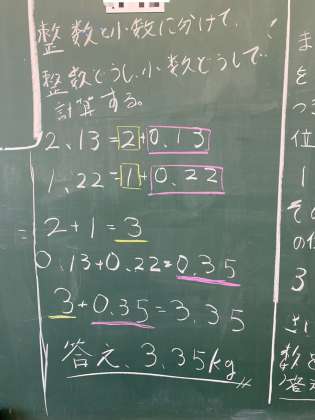 整数と小数に分けて、
整数どうし小数どうしで
計算する。
2、13=2+0.13
1、22=1+0.22
2+1=3
0.13+0.22=0.35
3+0.35=3.35
答え、3.35kg
ま
を
つ
位
1
その
の位
3
さい
数と
答え